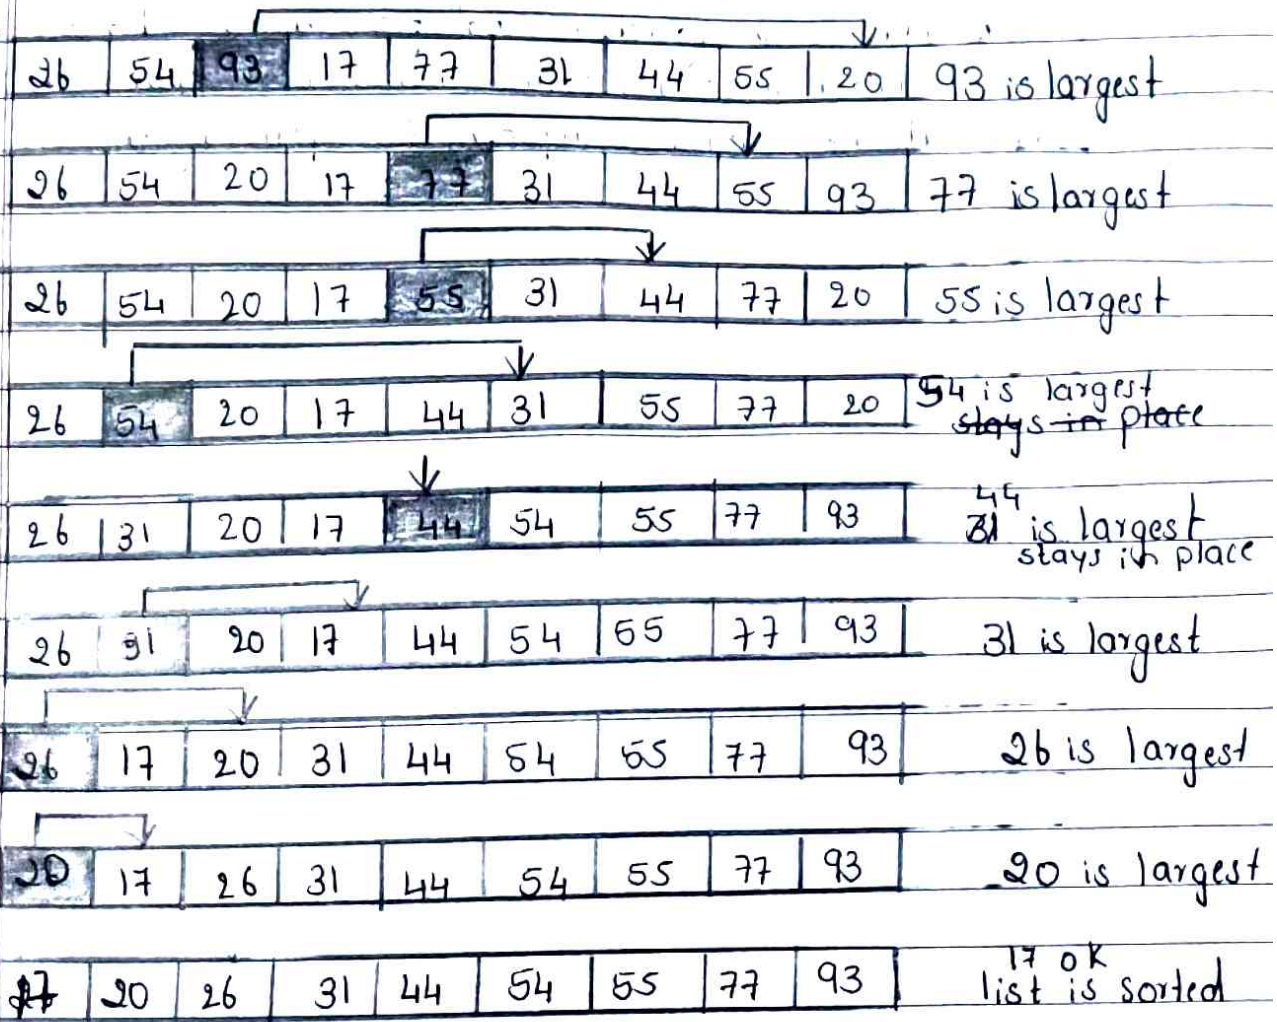 26 54 93 17 77 31 44 55 20 93 is largest
26 54 20 17 77 31 44 55 93 77 is largest
26 54 20 17 55 31 44 77 20 55 is largest
26 54 20 17 44 31 55 77 20 54 is largest
stays in place
44
26 31 20 17 44 54 55 77 93 31 is largest
stays in place
26 31 20 17 44 54 55 77 93 31 is largest
26 17 20 31 44 54 55 77 93 26 is largest
20 17 26 31 44 54 55 77 93 20 is largest
17 ok
17 20 26 31 44 54 55 77 93 list is sorted